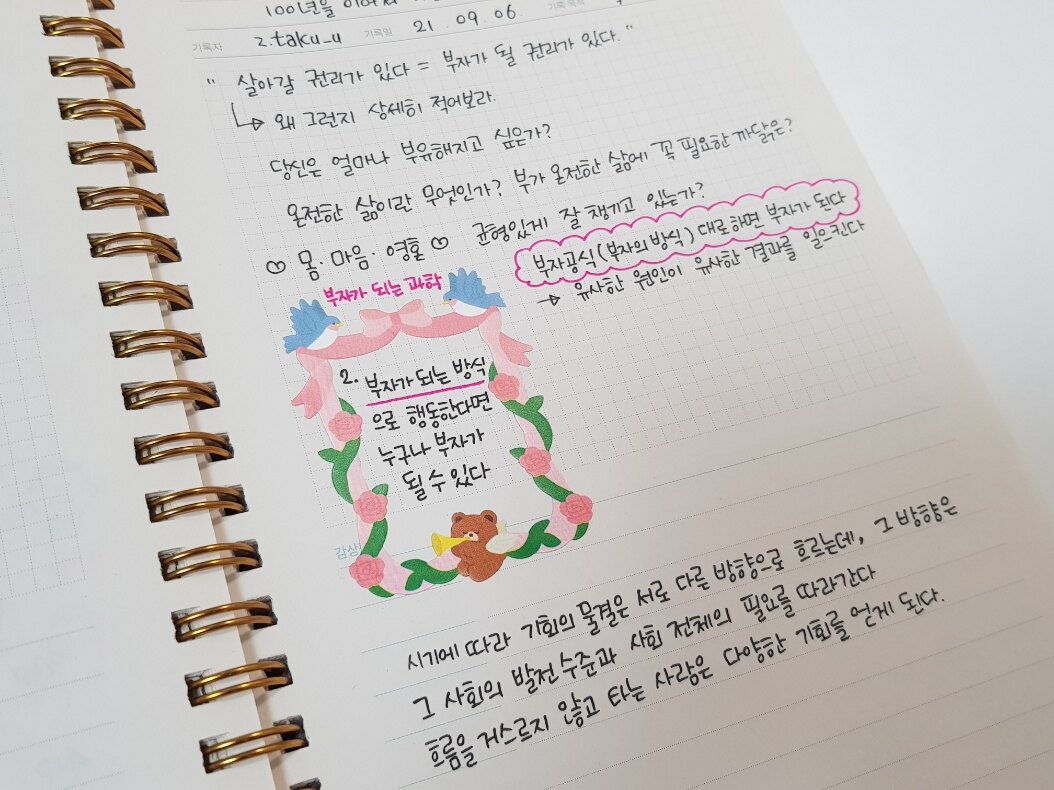 100년을
기록자 z.taku_u 기록일 21.09.06. 기록 목적
" 살아갈 권리가 있다 = 부자가 될 권리가 있다. "
↳ 왜 그런지 상세히 적어보라.
당신은 얼마나 부유해지고 싶은가?
온전한 삶이란 무엇인가? 부가 온전한 삶에 꼭 필요한 까닭은?
♡ 몸·마음·영혼 ♡ 균형있게 잘 챙기고 있는가?
부자공식(부자의 방식) 대로하면 부자가 된다
→ 유사한 원인이 유사한 결과를 일으킨다
부자가 되는 과학
2. 부자가 되는 방식
으로 행동한다면
누구나 부자가
될 수 있다
감상
시기에 따라 기회의 물결은 서로 다른 방향으로 흐르는데, 그 방향은
그 사회의 발전수준과 사회 전체의 필요를 따라간다
흐름을 거스르지 않고 타는 사람은 다양한 기회를 얻게 된다.